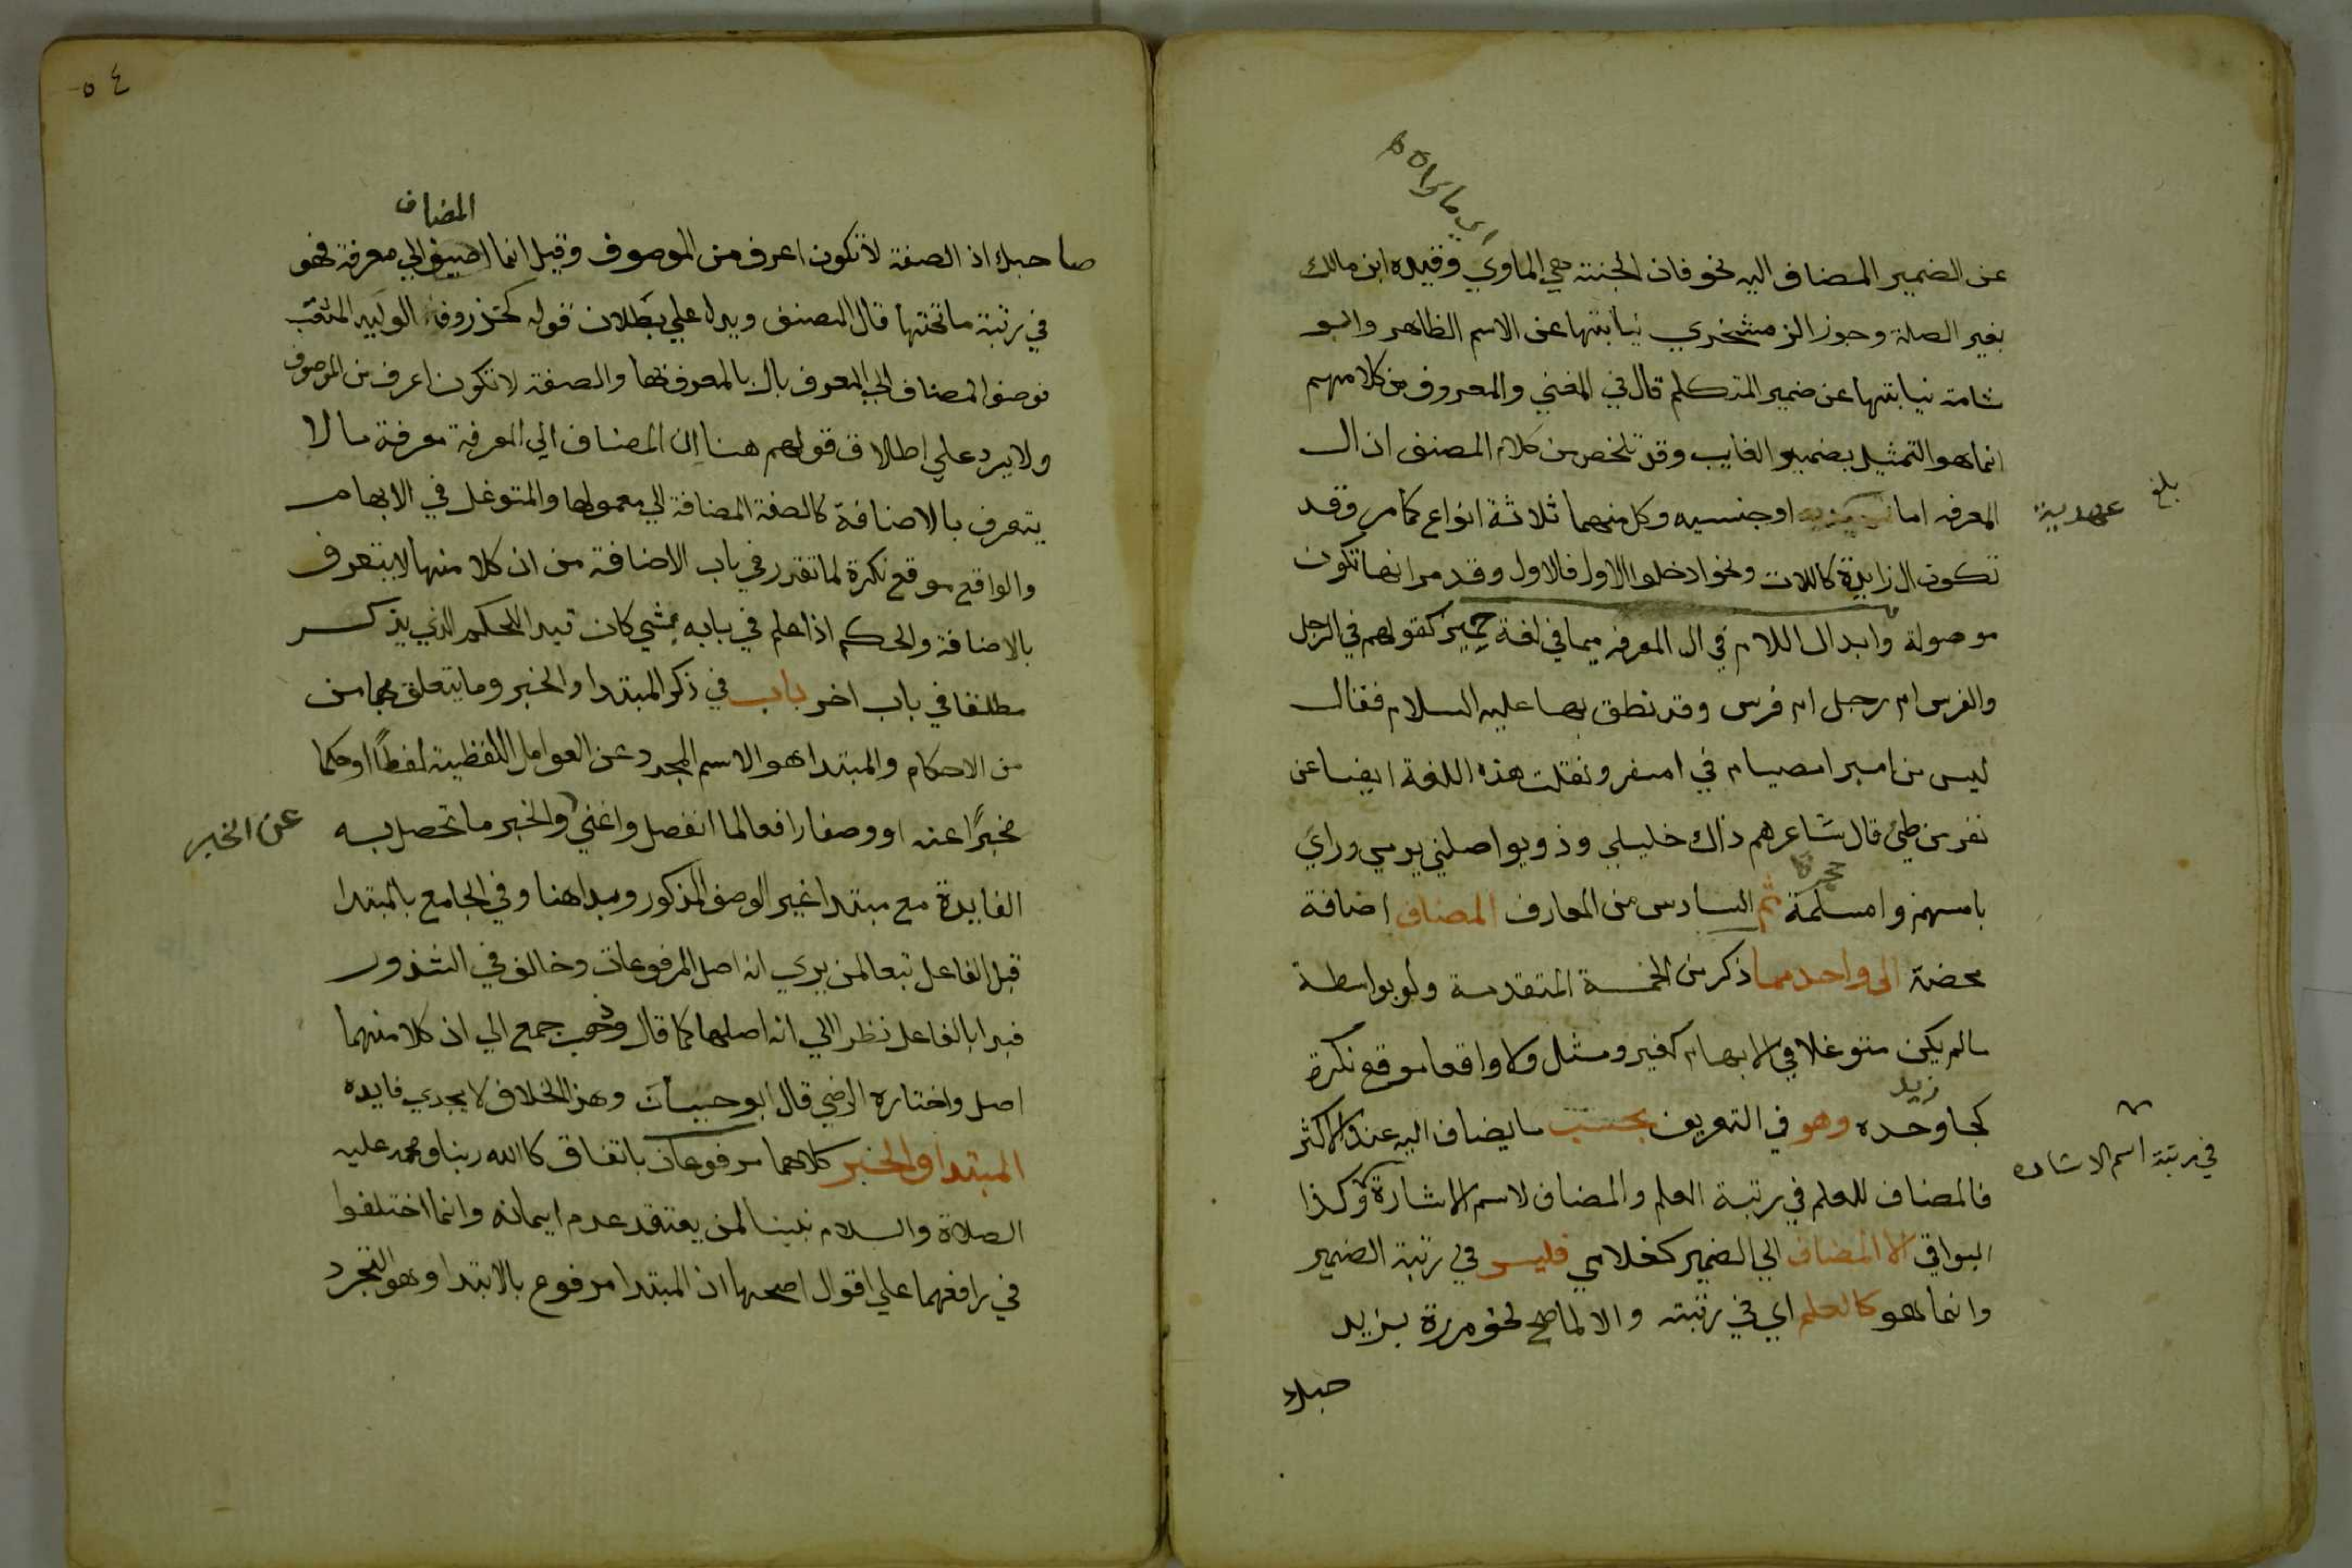 عن الضمير المضاف اليه نحو فان الجنة هي الماوي وقيده ابن مالك
بغير الصلة وجوز الزمخشري نيابتها عن الاسم الظاهر وابو
شامة نيابتها عن ضمير المتكلم قال في المغني والمعروف من كلامهم
انما هو التمثيل بضمير الغايب وقد تلخص من كلام المصنف ان ال
المعرفه اما عهدية او جنسيه وكل منهما ثلاثة انواع كما مر وقد
بلغ
تكون ال زايدة كاللات ونحو ادخلوا الاول فالاول وقد مر انها تكون
موصولة وابدال اللام في ال المعرفه ميما في لغة حمير كقولهم في الرجل
والفرس ام رجل ام فرس وقد نطق بها عليه السلام فقال
ليس من امبر امصيام في امسفر ونقلت هذه اللغة ايضا عن
نفر من طيئ قال شاعرهم ذاك خليلي وذو يواصلني يرمي وراي
بامسهم وامسلمة ثم السادس من المعارف المضاف اضافة
محضة الى واحد مما ذكر من الخمسة المتقدمة ولو بواسطة
مالم يكن متوغلا في الابهام كغير ومثل ولا واقعا موقع نكرة
كجا زيد وحده وهو في التعريف بحسب ما يضاف اليه عند الاكثر
فالمضاف للعلم في رتبة العلم والمضاف لاسم الاشارة وكذا
في رتبة اسم الاشاره
البواقي الا المضاف الي الضمير كغلامي فليس في رتبة الضمير
وانما هو كالعلم اي في رتبته والا لما صح نحو مررة بزيد
صاحبك اذ الصفة لا تكون اعرف من الموصوف وقيل انما المضاف الي معرفة فهو
في رتبة ما تحتها قال المصنف ويدل علي بطلان قوله كخذروف الوليد المثقب
فوصف المضاف الي المعرف بال بالمعرف بها والصفة لا تكون اعرف من الموصوف
ولا يرد علي اطلاق قولهم هنا ان المضاف الي المعرفة معرفة مالا
يتعرف بالاضافة كالصفة المضافة الي معمولها والمتوغل في الابهام
والواقع موقع نكرة لما تقرر في باب الاضافة من ان كلا منها لا يتعرف
بالاضافة والحكم اذا علم في بابه بمشي كان قيدا للحكم الذي يذكر
مطلقا في باب اخر باب في ذكر المبتدا والخبر وما يتعلق بهما من
من الاحكام والمبتدا هو الاسم المجرد عن العوامل اللفظية لفظا او حكما
مخبرا عنه او وصفا رافعا لما انفصل واغني عن الخبر والخبر ما تحصل به
الفايدة مع مبتدا غير الوصف المذكور وبدا هنا وفي الجامع بالمبتدا
قبل الفاعل تبعا لمن يري انه اصل المرفوعات وخالف في الشذور
فبدا بالفاعل نظرا الي انه اصلها كما قال وذهب جمع الي ان كلا منهما
اصل واختاره الرضي قال ابو حيان وهذا الخلاف لا يجدي فايده
المبتدا والخبر كلاهما مرفوعان باتفاق كالله ربنا ومحمد عليه
الصلاة والسلام نبينا لمن يعتقد عدم ايمانه وانما اختلفوا
في رافعهما علي اقوال اصحها ان المبتدا مرفوع بالابتدا وهو التجرد